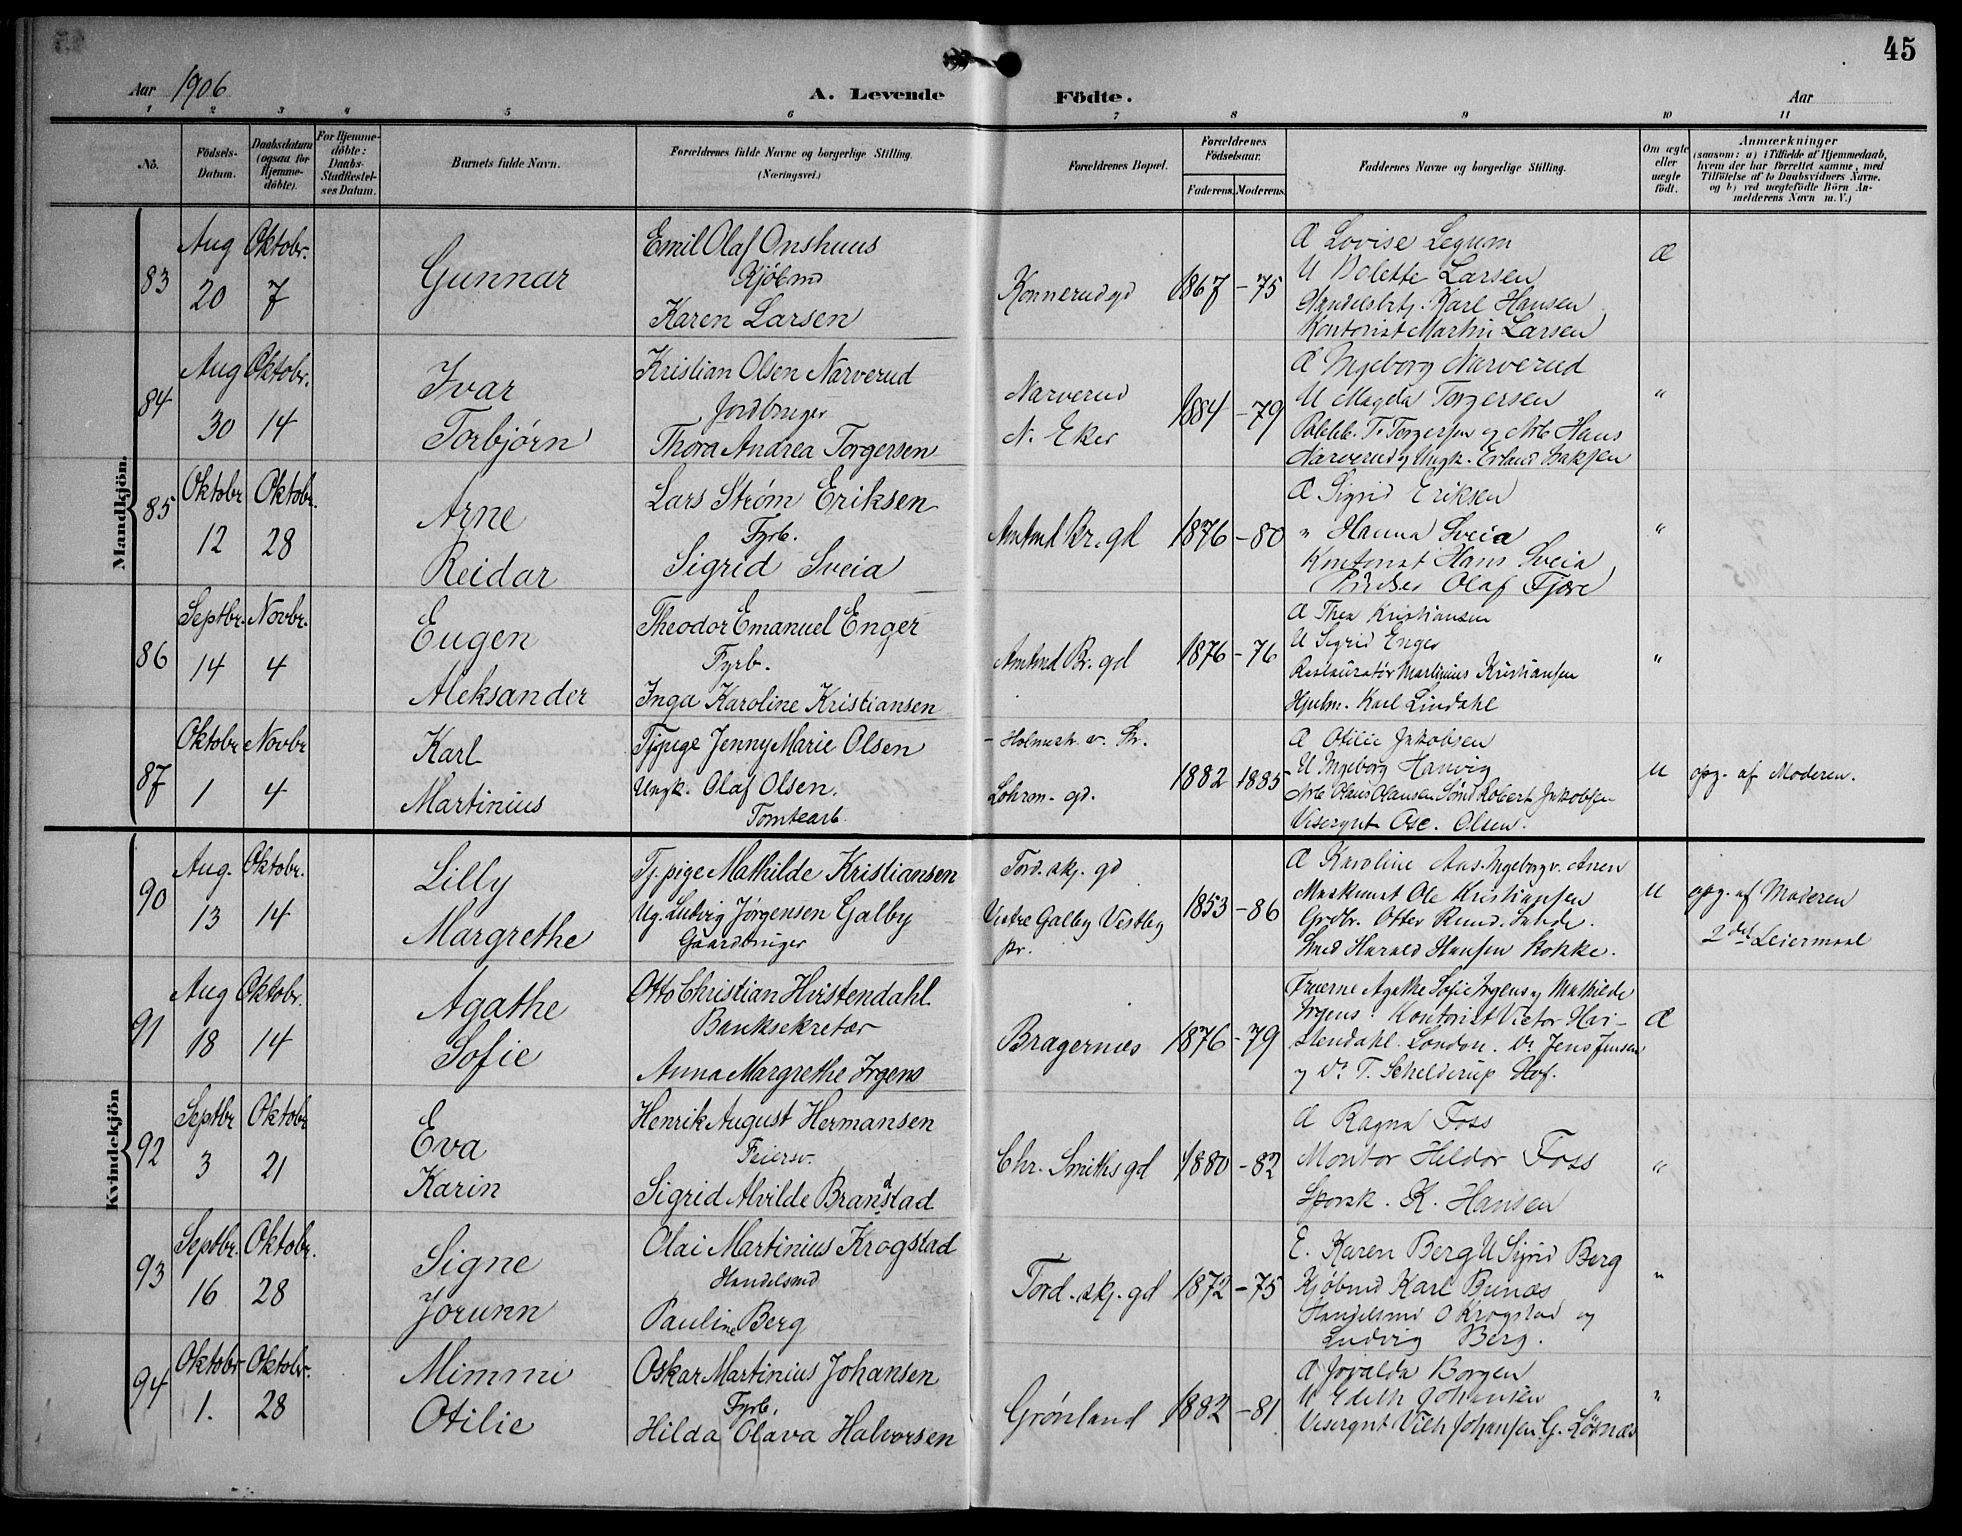 45
Aar 1906
A. Levende Födte.
Aar
1 2 3 4 5 6 7 8 9 10 11
No.
Födsels-Datum.
Daabsdatum (ogsaa for Hjemme-döbte).
For Hjemme-döbte: Daabs-Stadfæstel-ses Datum.
Barnets fulde Navn.
Forældrenes fulde Navne og borgerlige Stilling.
(Næringsvei.)
Forældrenes Bopæl.
Forældrenes Födselsaar.
Faderens. Moderens.
Faddernes Navne og borgerlige Stilling.
Om ægte eller uægte födt.
Anmærkninger
(saasom: a) i Tilfælde af Hjemmedaab,
hvem der har forrettet samme, med
Tilföielse af to Daabsvidners Navne,
og b) ved uægtefödte Börn An-
melderens Navn m. V.)
Mandkjön.
83
Aug 20
Oktobr. 7
Gunnar
Emil Olaf Onshuus
Kjöbmd
Karen Larsen
Konnerudgd
1867 -75
Æ Lovise Legum
U Dolette Larsen
Handelsbtj. Karl Hansen
Kontorist Martin Larsen
Æ
84
Aug 30
Oktobr. 14
Ivar
Torbjørn
Kristian Olsen Narverud
Jordbruger
Thora Andrea Torgersen
Narverud
N. Eker
1884 -79
Æ Ingeborg Narverud
U Magda Torgersen
T. Torgersen og Arb Hans
Narverud og Ungk. Erland Isaksen
"
85
Oktobr 12
Oktobr. 28
Arne
Reidar
Lars Strøm Eriksen
Fyrb.
Sigrid Sveia
Amtmd Br. gd
1876 -80
Æ Sigrid Eriksen
" Hanna Sveia
Kontorist Hans Sveia
Olaf Fjære
"
86
Septbr. 14
Novbr. 4
Eugen
Aleksander
Theodor Emanuel Enger
Fyrb.
Inga Karoline Kristiansen
Amtmd Br. gd
1876 -76
Æ Thea Kristiansen
U Sigrid Enger
Restauratör Martinius Kristiansen
Hjulm. Karl Lindahl
"
87
Oktobr 1
Novbr 4
Karl
Martinius
Tjpige Jenny Marie Olsen
Ungk. Olaf Olsen.
Tomtearb.
- Holmestr. v. Str.
Lohrm. gd.
1882 1885
Æ Otilie Jakobsen
U Ingeborg Hanvig
Arb Olaus Olausen Sömd Robert Jakobsen
Visergut Osc. Olsen.
U
opg. af Moderen.
Kvindekjön
90
Aug. 13
Oktobr. 14
Lilly
Margrethe
Tj.pige Mathilde Kristiansen
Ug. Ludvig Jørgensen Galby
Gaardbruger
Tord. skj. gd
Vestre Galby Vestby
pr.
1853 -86
Æ Karoline Aas. Ingeborg v. Anen
Maskinist Ole Kristiansen
Grdbr. Otter Rund. Sande.
Smed Harald Hansen Stokke.
U
opg. af Moderen
2det Leiermaal
91
Aug 18
Oktobr. 14
Agathe
Sofie
Otto Christian Hvistendahl.
Banksekretær
Anna Margrethe Irgens
Bragernæs
1876 -79
Fruerne Agathe Sofie Irgens og Mathilde
Irgens. Kontorist Victor Hvi-
stendahl. London. Dr Jens Jensen
og Dr. T. Schelderup Hof.
Æ
92
Septbr 3
Oktobr 21
Eva
Karin
Henrik August Hermansen
Feiersv.
Sigrid Alvilde Brandstad
Chr. Smiths gd
1880 -82
Æ Ragna Foss
Montør Heldor Foss
Sporsk. K. Hansen
"
93
Septbr. 16
Oktobr. 28
Signe
Jorunn
Olai Martinius Krogstad
Handelsmd
Pauline Berg
Tord. skj. gd
1872 -75
E. Karen Berg U Sigrid Berg
Kjöbmd Karl Brenæs
Handelsmd O Krogstad og
Ludvig Berg.
"
94
Oktobr 1.
Oktobr. 28
Mimmi
Otilie
Oskar Martinius Johansen
Fyrb.
Hilda Olava Halvorsen
Grønland
1882 -81
Æ Jovalda Borgen
U Edith Johansen
Visergut Vilh Johansen. G. Lösnæs
"